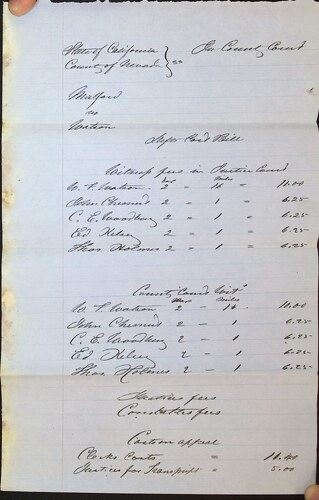 State of California } In County Court
County of Nevada } ss
Mulford
vs
Watson
Cost Bill
Witness fees in Justice Court
days miles
W. P. Watson 2 " 16 = 11.00
John Chesnut 2 " 1 = 6.25
C. E. Woodbury 2 " 1 " 6.25
Ed Kelsey 2 " 1 = 6.25
Thos Holmes 2 " 1 = 6.25
County Court Wits
days miles
W. P. Watson 2 - 16 . 11.00
John Chesnut 2 - 1 6.25
C. E. Woodbury 2 - 1 6.25
Ed Kelsey 2 - 1 6.25
Thos Holmes 2 - 1 6.25
Justices fees
Constables fees
Cost on appeal
Clerks Costs =
Justices for Transcript = 5.00